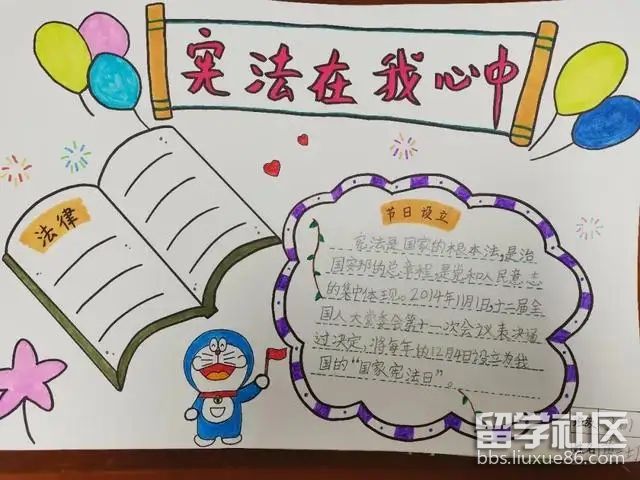 宪法在我心中
法律
节日设立
宪法是国家的根本法,是治
国安邦的总章程,是党和人民意志
的集中体现。2014年11月1日,十二届全
国人大常委会第十一次会议表决通
过决定,将每年的12月4日设立为我
国的“国家宪法日”。
留学社区
bbs.liuxue86.com